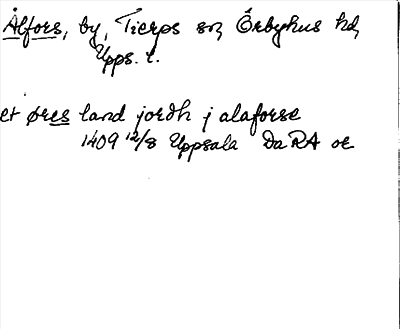 Ålfors, by, Tierps sn, Örbyhus hd,
Upps. l.
et øres land jordh j alaforse
1409 12/8 Uppsala DaRA or